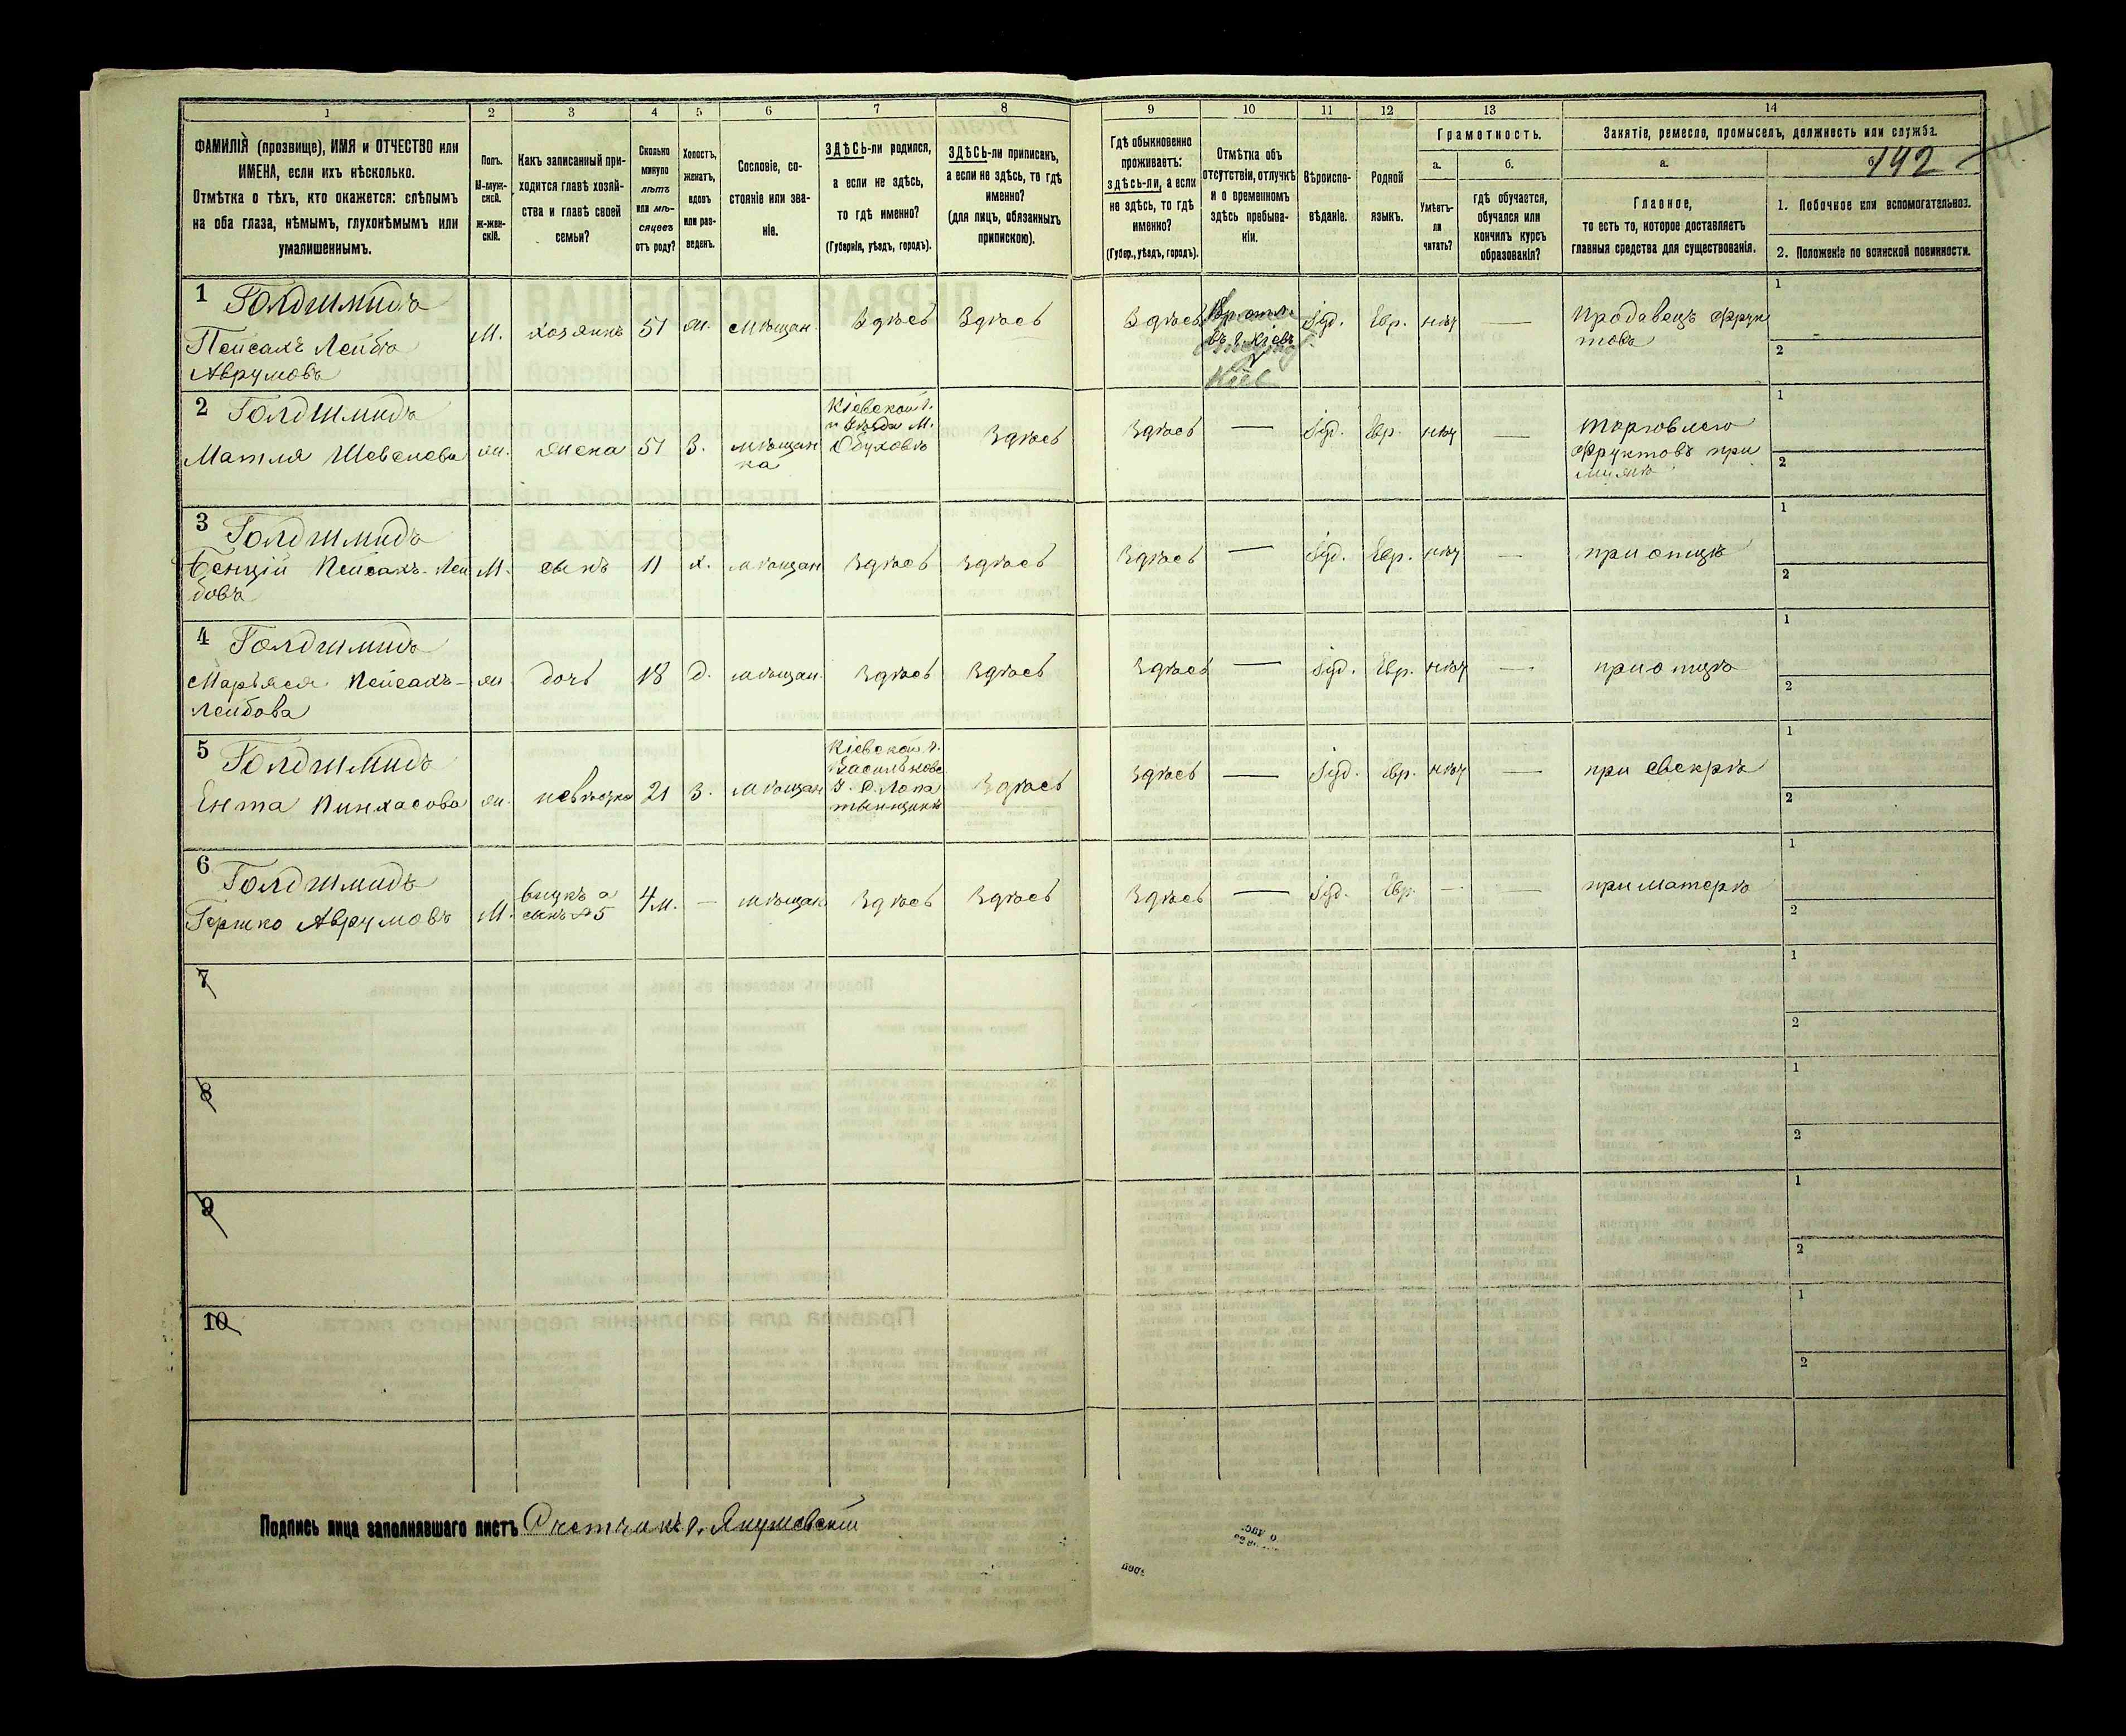 1 2 3 4 5 6 7 8 9 10 11 12 13 14
ФАМИЛІЯ (прозвище), ИМЯ и ОТЧЕСТВО или
ИМЕНА, если ихъ нѣсколько.
Отмѣтка о тѣхъ, кто окажется: слѣпымъ
на оба глаза, нѣмымъ, глухонѣмымъ или
умалишеннымъ.
Полъ.
М-муж-
ской.
Ж-жен-
скій.
Какъ записанный при-
ходится главѣ хозяй-
ства и главѣ своей
семьи?
Сколько
минуло
лѣтъ
или мѣ-
сяцевъ
отъ роду?
Холостъ,
женатъ,
вдовъ
или раз-
веденъ.
Сословіе, со-
стояніе или зва-
ніе.
ЗДѢСЬ-ли родился,
а если не здѣсь,
то гдѣ именно?
(Губернія, уѣздъ, городъ).
ЗДѢСЬ-ли приписанъ,
а если не здѣсь, то гдѣ
именно?
(для лицъ, обязанныхъ
припискою).
Гдѣ обыкновенно
проживаетъ:
здѣсь-ли, а если
не здѣсь, то гдѣ
именно?
(Губер., уѣздъ, городъ).
Отмѣтка объ
отсутствіи, отлучкѣ
и о временномъ
здѣсь пребыва-
ніи.
Вѣроиспо-
вѣданіе.
Родной
языкъ.
Грамотность.
а.
Умѣетъ-
ли
читать?
б.
гдѣ обучается,
обучался или
кончилъ курсъ
образованія?
Занятіе, ремесло, промыселъ, должность или служба.
а.
Главное,
то есть то, которое доставляетъ
главныя средства для существованія.
б.
192
1. Побочное или вспомогательное.
2. Положеніе по воинской повинности.
1 Голдшмидъ
Пейсахъ Лейба
Аврумовъ
М. хозяинъ 51 ж. мѣщан. Здѣсь Здѣсь Здѣсь
въ г. Кіевъ
Іуд. Евр. нѣт —
Продавецъ фрук
товъ
1
2
2 Голдшмидъ
Матля Шевелева
ж. жена 51 З. мѣщан
ка
Кіевской г.
и уѣзда М.
Обуховѣ
Здѣсь Здѣсь — Іуд. Евр. нѣт —
торговлею
фруктовъ при
мужѣ
1
2
3 Голдшмидъ
Бенцій Пейсахъ-Лей
бовъ
М. сынъ 11 х. мѣщан Здѣсь Здѣсь Здѣсь — Іуд. Евр. нѣт — при отцѣ
1
2
4 Голдшмидъ
Марьяся Пейсахъ-
Лейбова
ж. дочь 18 д. мѣщан. Здѣсь Здѣсь Здѣсь — Іуд. Евр. нѣт — при отцѣ
1
2
5 Голдшмидъ
Ента Пинхасова
ж. невѣстка 21 З. мѣщан
Кіевской г.
Васильковс.
Здѣсь Здѣсь — Іуд. Евр. нѣт — при свекрѣ
1
2
6 Голдшмидъ
Гершко Аврумовъ
М. внукъ а
сынъ №5
4м. — мѣщан Здѣсь Здѣсь Здѣсь — Іуд. Евр. — — при матерѣ
1
2
7
1
2
8
1
2
9
1
2
10
1
2
Подпись лица заполнявшаго листъ Счетчикъ Янушевскій